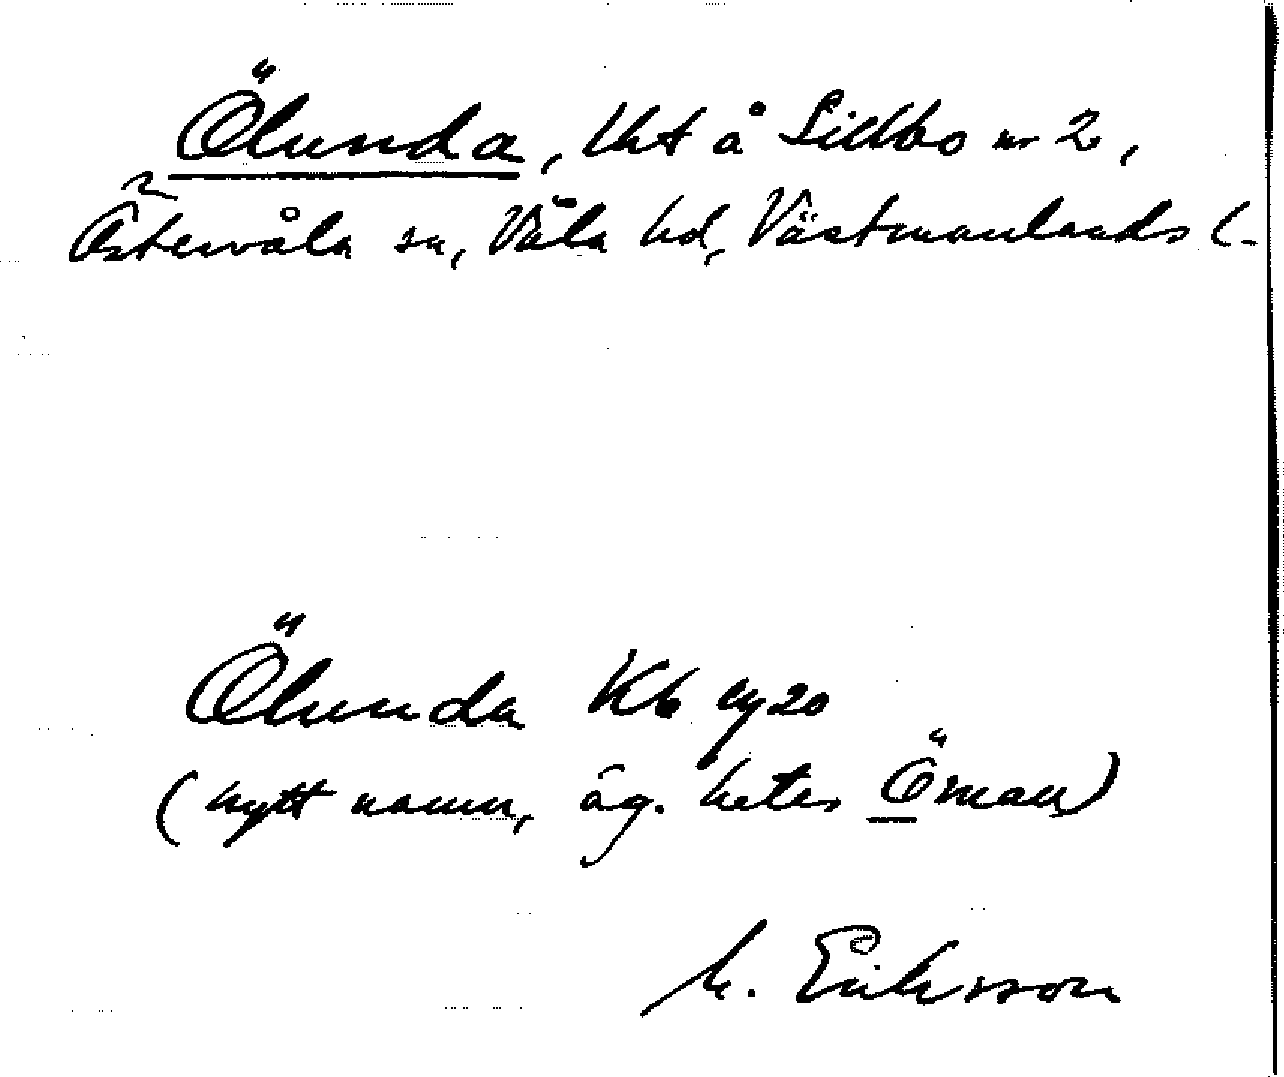 Ölunda, lht å Sillbo nr 2,
Östervåla sn, Våla hd, Västmanlands l.
Ölunda Kb 1920
(nytt namn, äg. heter Öman)
M. Eriksson